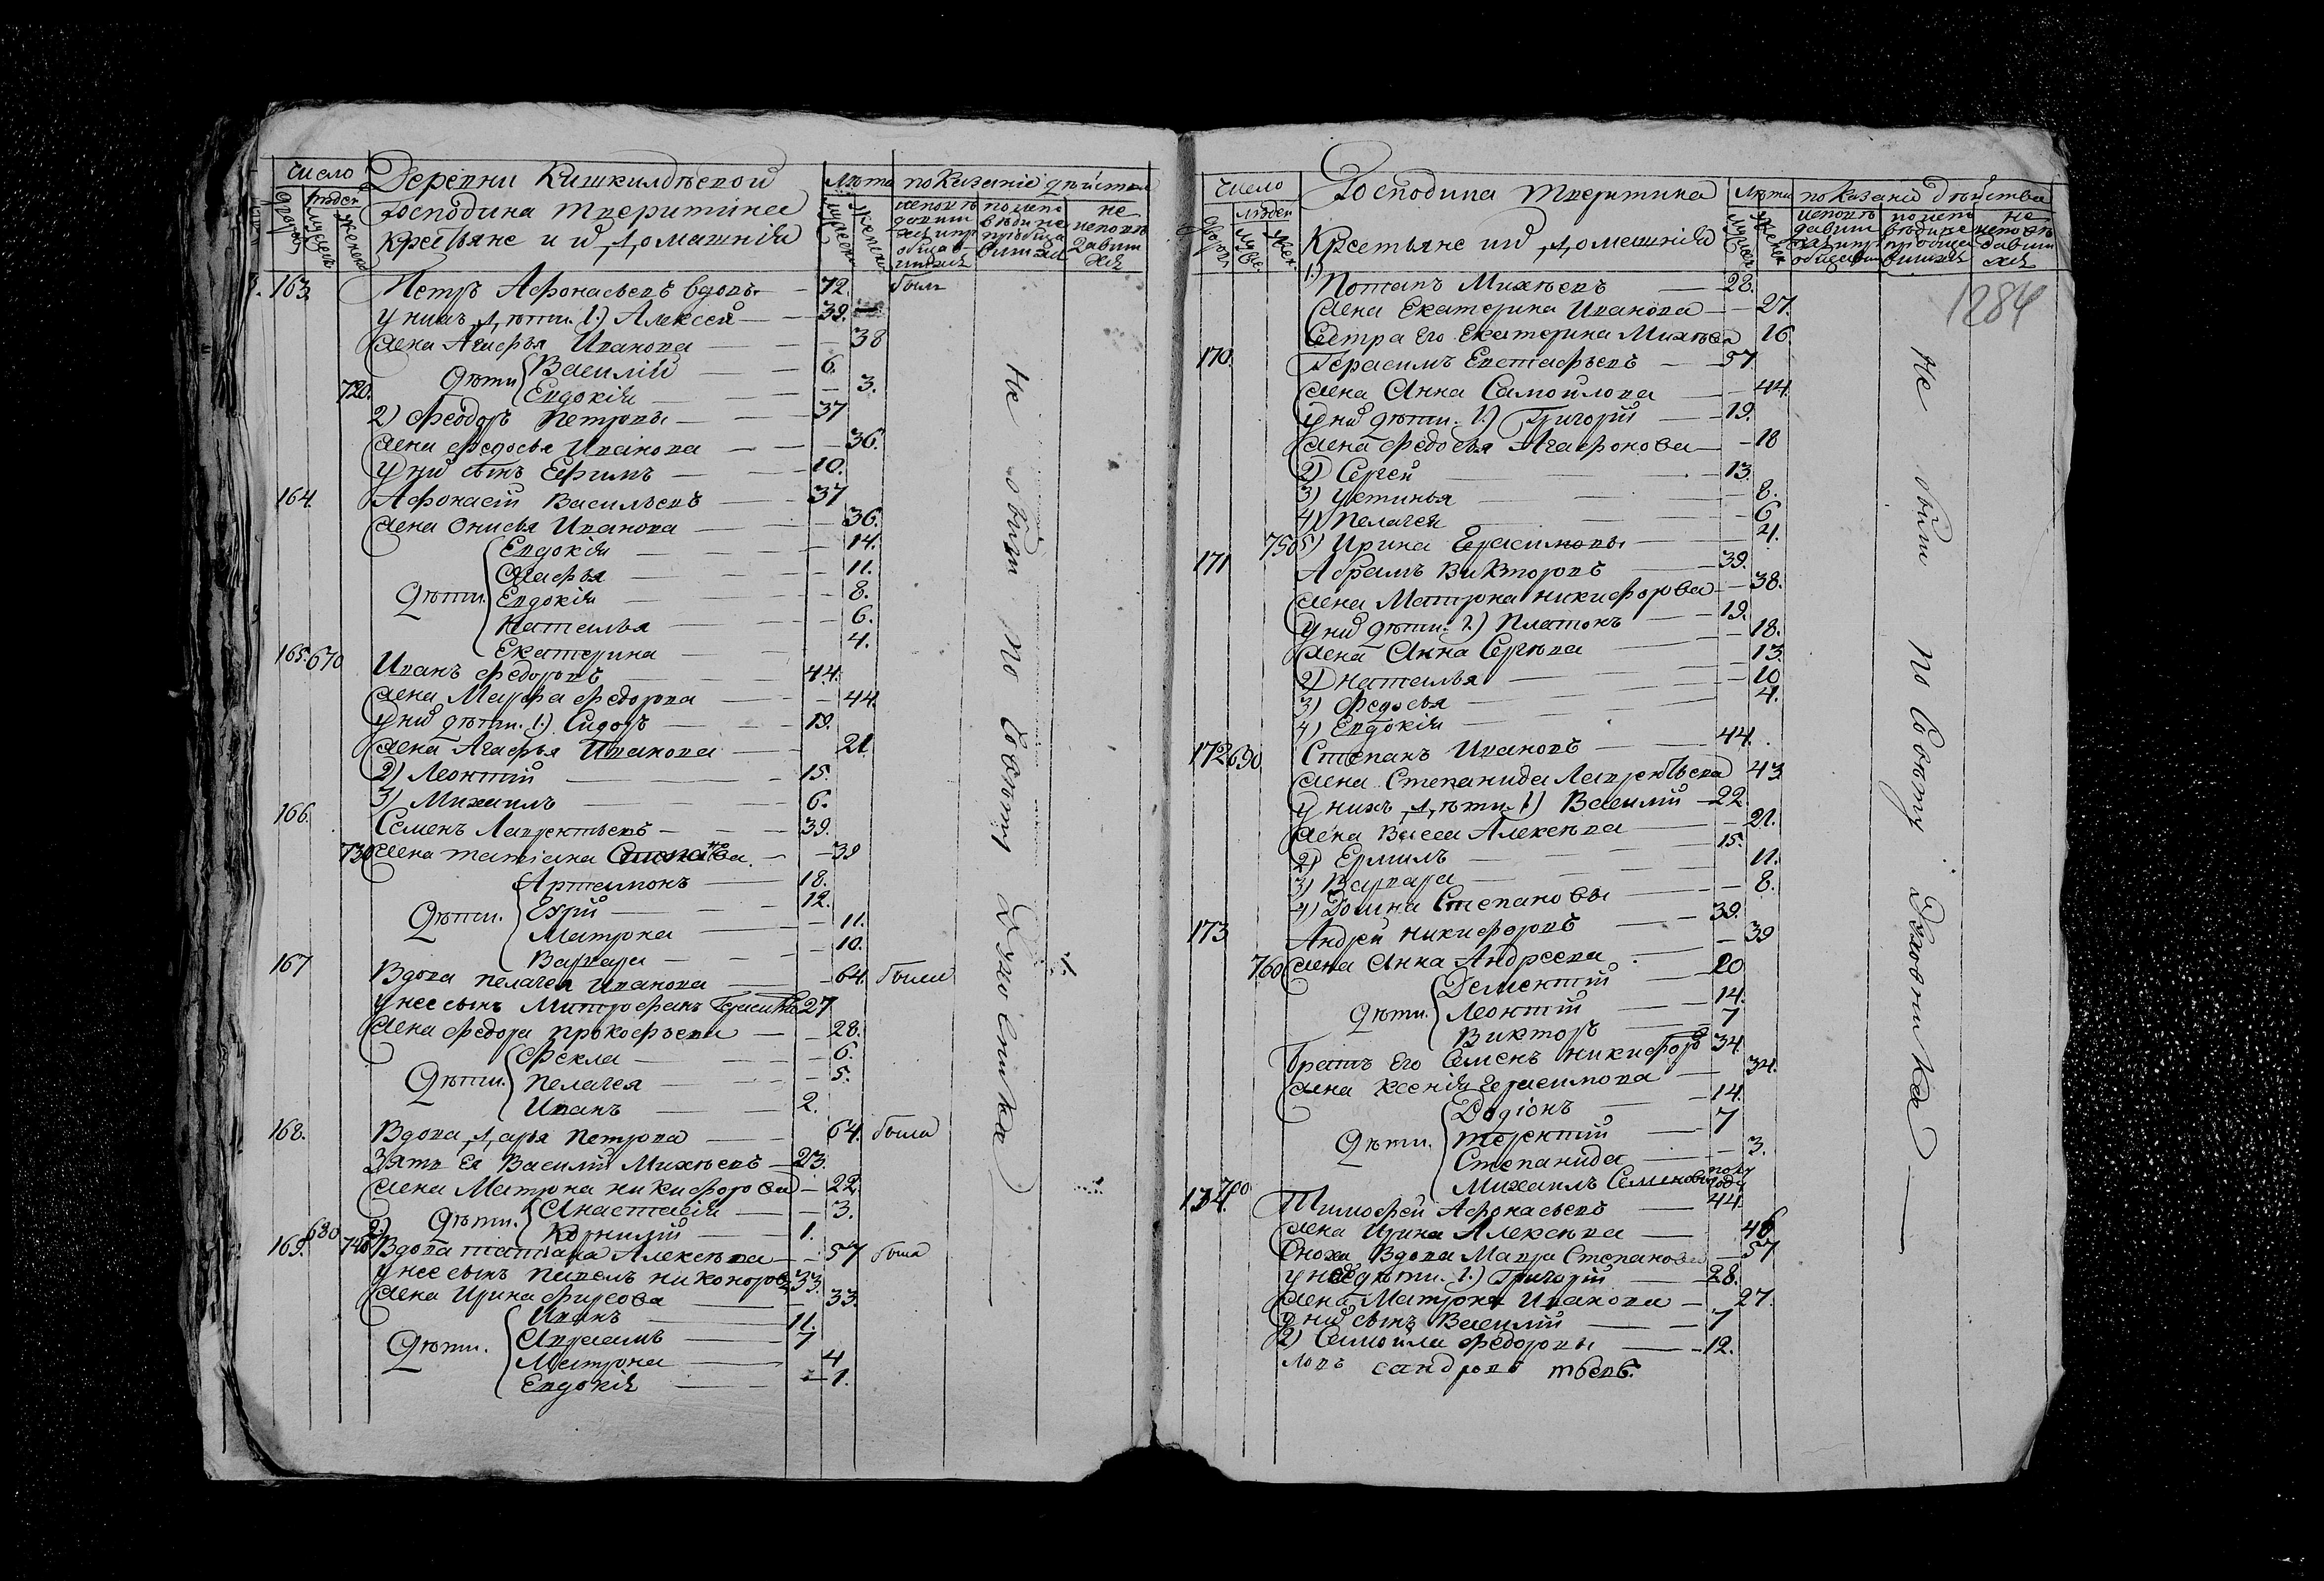 Число
дворовъ
людей
мужеск
женск
Деревни Кишкилдѣевой
Господина тверитина
крестьяне и ихъ домашнія
Лѣта
мужеск
женск
показаніе дѣйства
исповѣдавшихся и приобщавшихся
по исповѣди не приобщавшихся
не исповѣдавшихся
163. Петръ Афонасьевъ вдовъ — 72. былъ
у нихъ дѣти. 1.) Алексей — 39.
жена Агафья Иванова — 38
Дѣти Василий — 6.
720. Евдокія — 3.
2) Феодоръ Петровы — 37
жена федосья Иванова — 36.
у нихъ сынъ Ефимъ — 10.
164. Афонасій Васильевъ — 37
жена Онисья Иванова — 36.
Евдокія — 14.
Агафья — 11.
Дѣти. Евдокія — 8.
Наталья — 6.
Екатерина — 4.
165. 670 Иванъ федоровъ — 44.
жена Марфа федорова — 44.
у нихъ дѣти. 1.) Сидоръ — 19.
жена Агафья Иванова — 21
2) Леонтій — 15.
3) Михаилъ — 6.
166. Семенъ Лаврентьевъ — 39.
730 жена татіана — 39
Артамонъ — 18.
Дѣти. — 12.
Матрона — 11.
Варвара — 10.
167 Вдова пелагея Иванова — 64. была
у нее сынъ Митрофанъ Герасимовъ 27
жена федора прокофьева — 28.
Фекла — 6.
Дѣти. пелагея — 5.
Иванъ — 2.
168. Вдова дарья петрова — 64. была
Зять Ея Василій Михѣевъ — 23.
жена Матрона никифорова — 22.
Дѣти. Анастасія — 3.
680 2) Корнилій — 1.
169. 740 Вдова татіана Алексѣева — 57 была
у нее сынъ павелъ никоноровъ 33.
жена Ирина фирсова — 33.
Иванъ — 11.
Дѣти. Авраамъ — 7
Матрона — 4
Евдокія — 1.
Не были по совѣту Духовника
Число
дворовъ
людей
муж
жен
Господина тверитина
Крестьяне ихъ домашнія
Лѣта
мужеск
женск
показаніе дѣйства
исповѣдавшихся и приобщавшихся
по исповѣди не приобщавшихся
не исповѣдавшихся
1284
1.) Потапъ Михѣевъ — 28.
жена Екатерина Иванова — 27.
Сестра его Екатерина Михѣева 16.
170. Герасимъ Евстафьевъ — 57.
жена Анна Самойлова — 44.
у нихъ дѣти. 1.) Григорій — 19.
жена федосья Агафонова — 18
2) Сергей — 13.
3) устинья — 8.
4) пелагея — 6
750 5) Ирина Герасимовы — 4.
171 Абрамъ Викторовъ — 39.
жена Матрона никифорова — 38.
у нихъ дѣти. 1.) Платонъ — 19.
жена Анна Сергѣева — 18.
2) наталья — 13.
3) федосья — 10
4) Евдокія — 4.
172 690 Степанъ Ивановъ — 44.
жена Степанида Лаврентьева 43
у нихъ дѣти 1) Василій — 22
жена Васса Алексѣева — 21.
2) Ермилъ — 15.
3) Варвара — 11.
4) Домна Степановы — 8.
173 Андрей никифоровъ — 39.
760 жена Анна Андреева — 39
Дементій — 20
Дѣти. Леонтій — 14.
Викторъ — 7
братъ Его Семенъ никифоровъ 34.
жена Ксенія Герасимова — 34.
Родіонъ — 14.
Дѣти. терентій — 7
Степанида — 3.
Михаилъ Семеновы полугоду
174. 700 Тимофей Афонасьевъ — 44.
жена Ирина Алексѣева — 46.
Сноха Вдова Мавра Степанова — 57
у нее дѣти. 1.) Григорій — 28.
жена Матрона Иванова — 27.
у нихъ сынъ Василій — 7
2) Самойла федоровы — 12.
Не были по совѣту Духовника